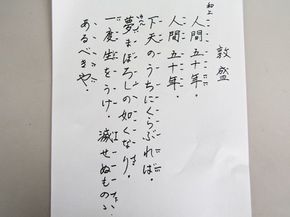 敦盛
和上
人間五十年・
人間五十年・
下天のうちにくらぶれば・
夢まぼろしの如くなり・
一度生をうけ・滅せぬものゝ
あるべきや・